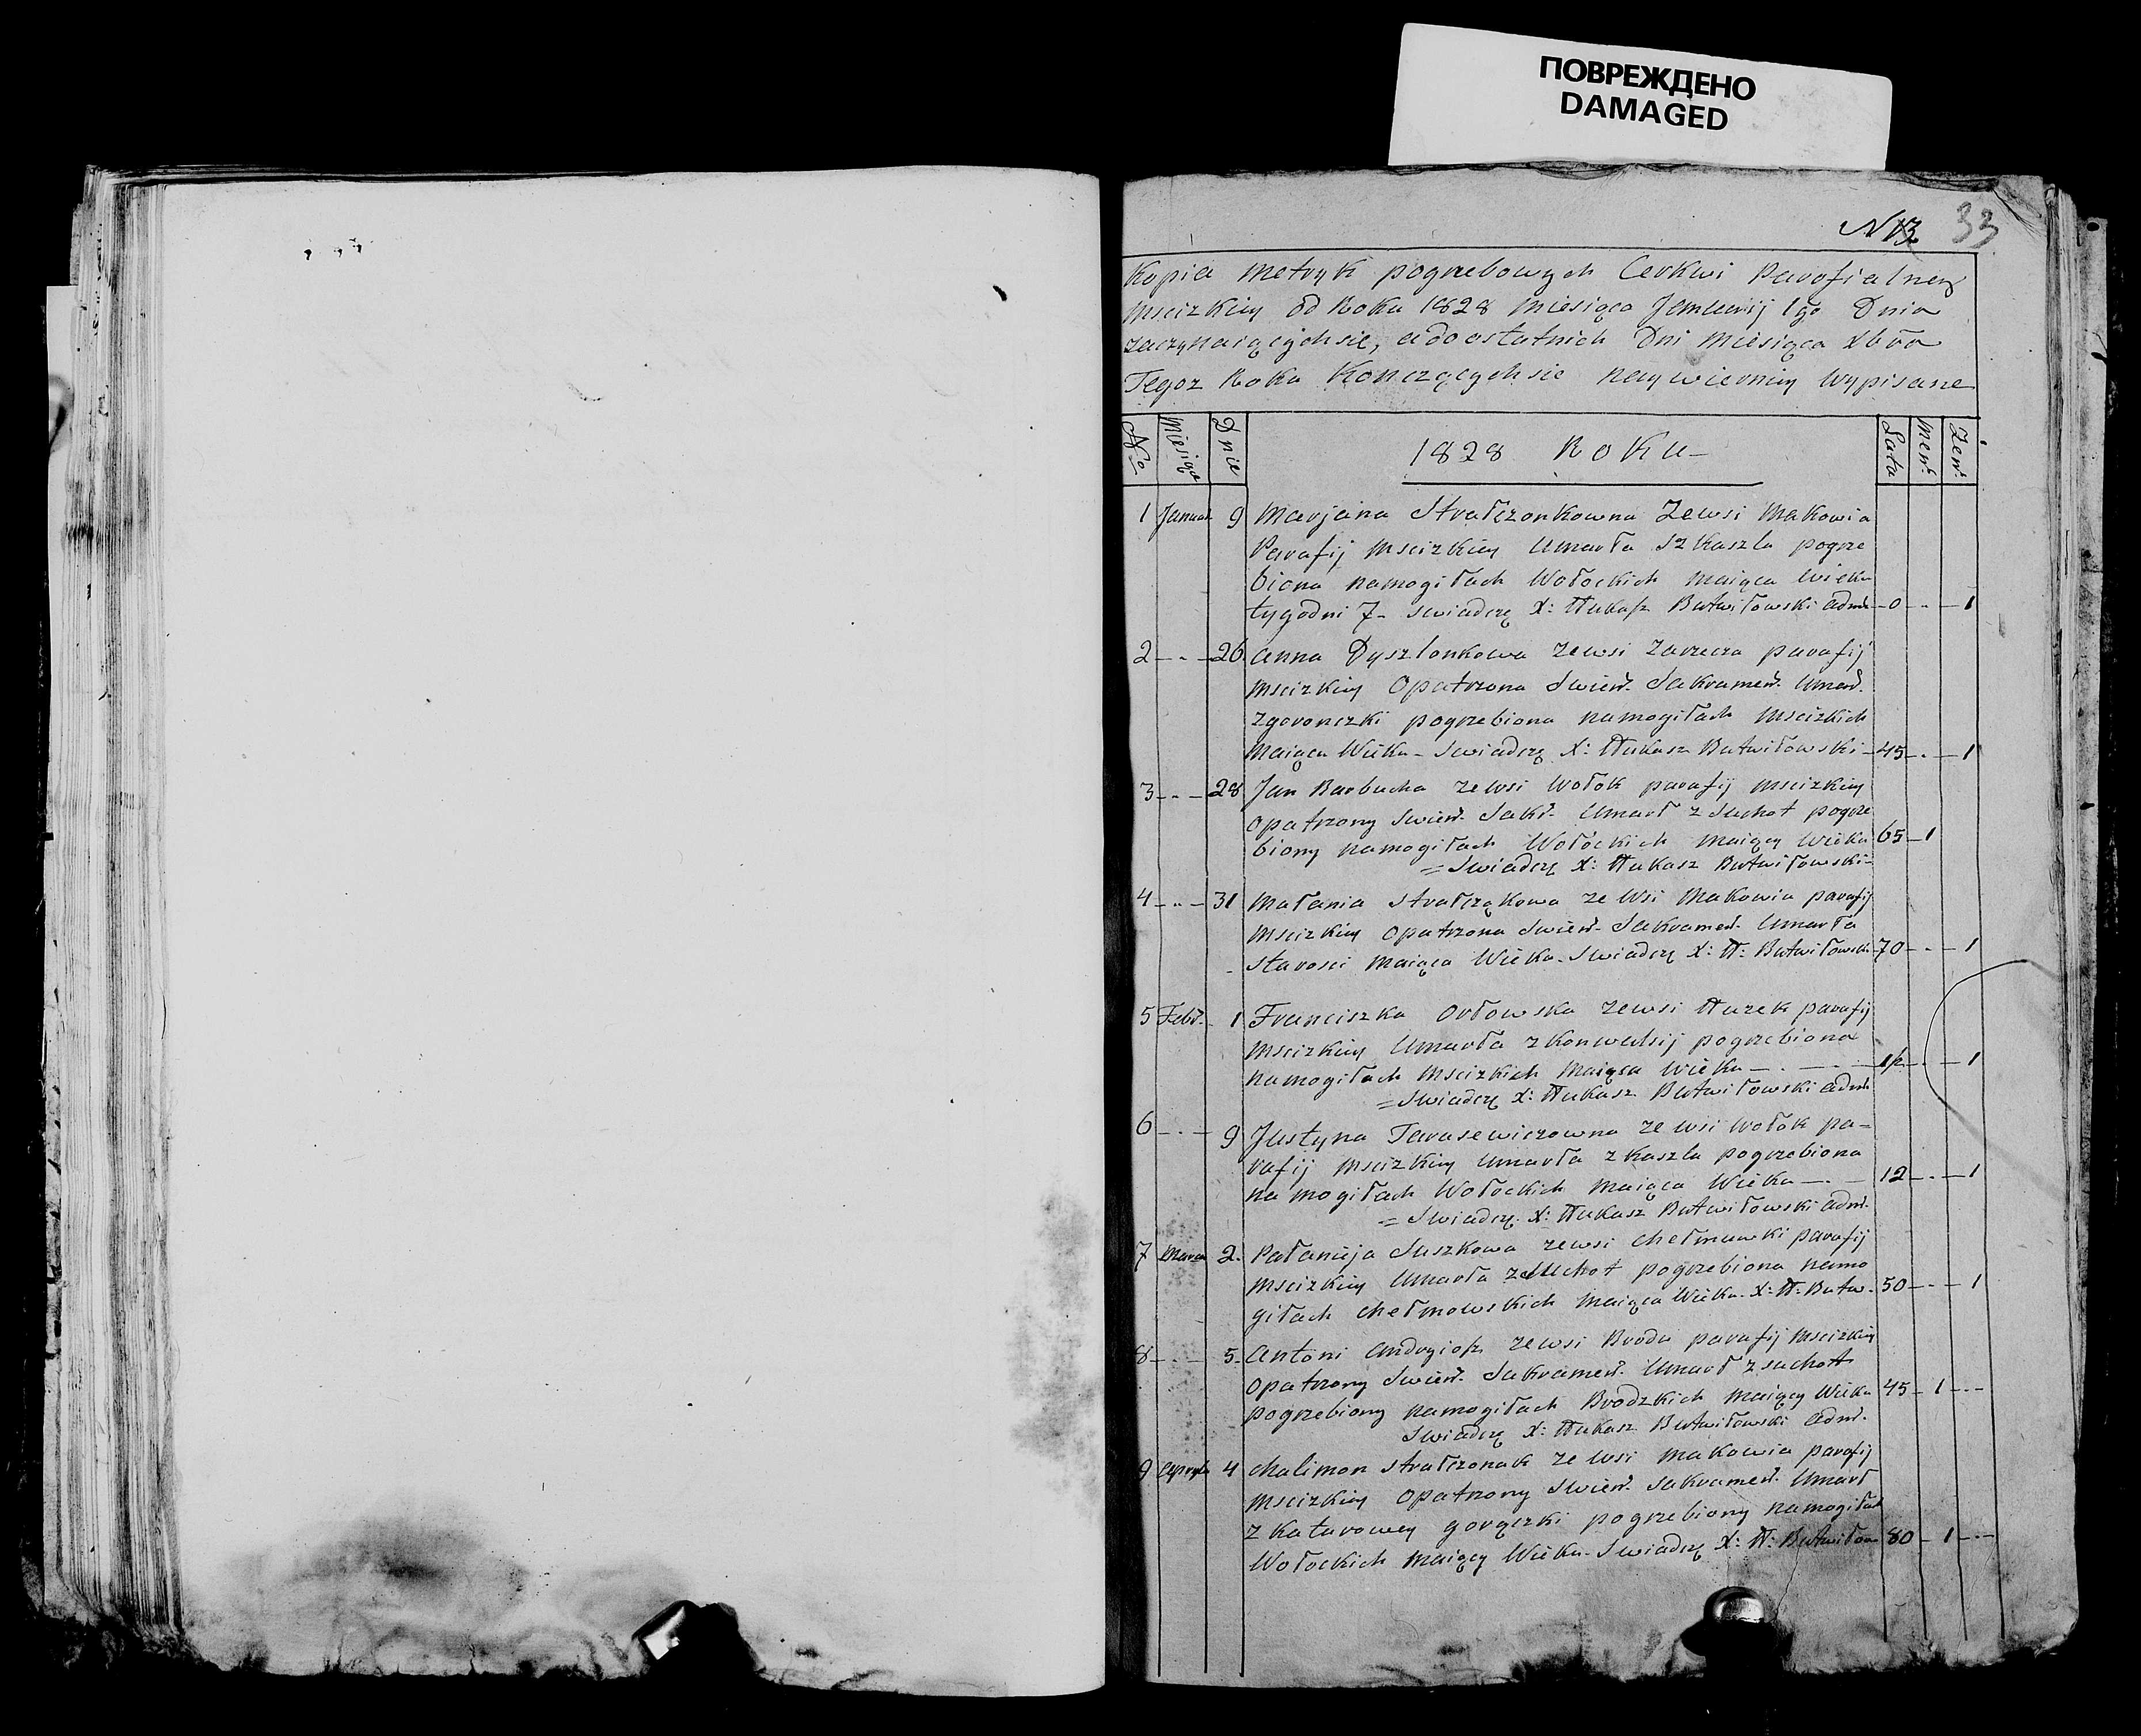 ПОВРЕЖДЕНО
DAMAGED
33
Kopia metryk pogrzebowych Cerkwi Parafialney
Mscizkiey od Roku 1828 Miesiąca Januarij 1go Dnia
zaczynaiącychsie, a do ostatnich Dni Miesiąca Xbra
Tegoz Roku Konczącychsie naywierniey wypisane
No Miesiąc Dnie 1828 Roku Lata Męs. Żeń.
1 Januar 9 Marjana Strałczonkowna zewsi Makowia
Parafij Mscizkiey Umarła szkaszlu pogrze
biona namogiłach Wołockich maiąca Wieku
tygodni 7 - swiadczę X: Łukasz Butwiłowski adm - 0 - - 1
2 - - - 26 Anna Dyszlonkowa zewsi Zarzecza parafij
Mscizkiey Opatrzona Swień. Sakrameń. Umarł.
zgoronczki pogrzebiona namogiłach Mscizkich
Maiąca Wieku - Swiadczę X: Łukasz Butwiłowski - 45 - - 1
3 - - - 28 Jan Barbucha zewsi Wołok parafij Mscizkiey
Opatrzony Swień. Sakr. Umarł z Suchot pogrze
biony namogiłach Wołockich Maiący Wieku 65 - 1
= Swiadczę X: Łukasz Butwiłowski -
4 - - - 31 Małania Strałcząkowa ze Wsi Makowia parafij
Mscizkiey Opatrzona Swień. Sakrameń. Umarła
starosci Maiąca Wieku - Swiadczę X: Ł: Butwiłowski - 70 - - 1
5 Febr. 1 Franciszka Orłowska zewsi parafij
Mscizkiey Umarła zkonwulsij pogrzebiona
namogiłach Mscizkich Maiąca Wieku - . - - 1
= Swiadczę X: Łukasz Butwiłowski adm
6 - - 9 Justyna Tarasewiczowna ze wsi Wołok pa-
rafij Mscizkiey Umarła zkaszlu pogrzebiona
na mogiłach Wołockich Maiąca Wieku - . - 12 - - 1
= Swiadczę X: Łukasz Butwiłowski adm.
7 Marca 2. Pałanieja Suszkowa zewsi Chełmowki parafij
Mscizkiey Umarła zSuchot pogrzebiona namo
giłach Chełmowskich Maiąca Wieku - X: Ł: Butw. 50 - - 1
8 - - 5. Antoni zewsi Broda parafij Mscizkiey
Opatrzony Swień. Sakrameń. Umarł z suchott
pogrzebiony namogiłach Brodzkich Maiący Wieku 45 - 1 - -
Swiadczę X: Łukasz Butwiłowski Adm.
9 Apryla 4 Chalimon Strałczonak ze Wsi Makowia parafij
Mscizkiey Opatrzony Swień. Sakrameń. Umarł
z Katarowey gorączki pogrzebiony namogiłach
Wołockich Maiący Wieku - Swiadczę X: Ł: Butwiłow 80 - 1 - -